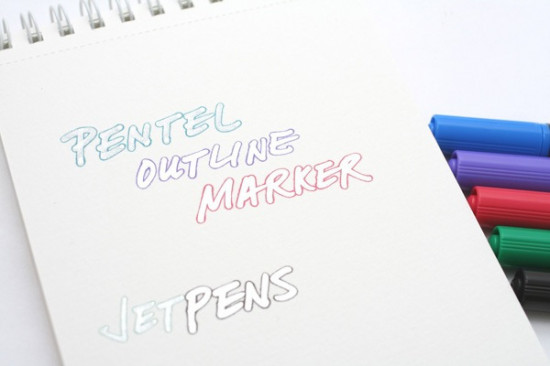 PENTEL
OUTLINE
MARKER
JETPENS